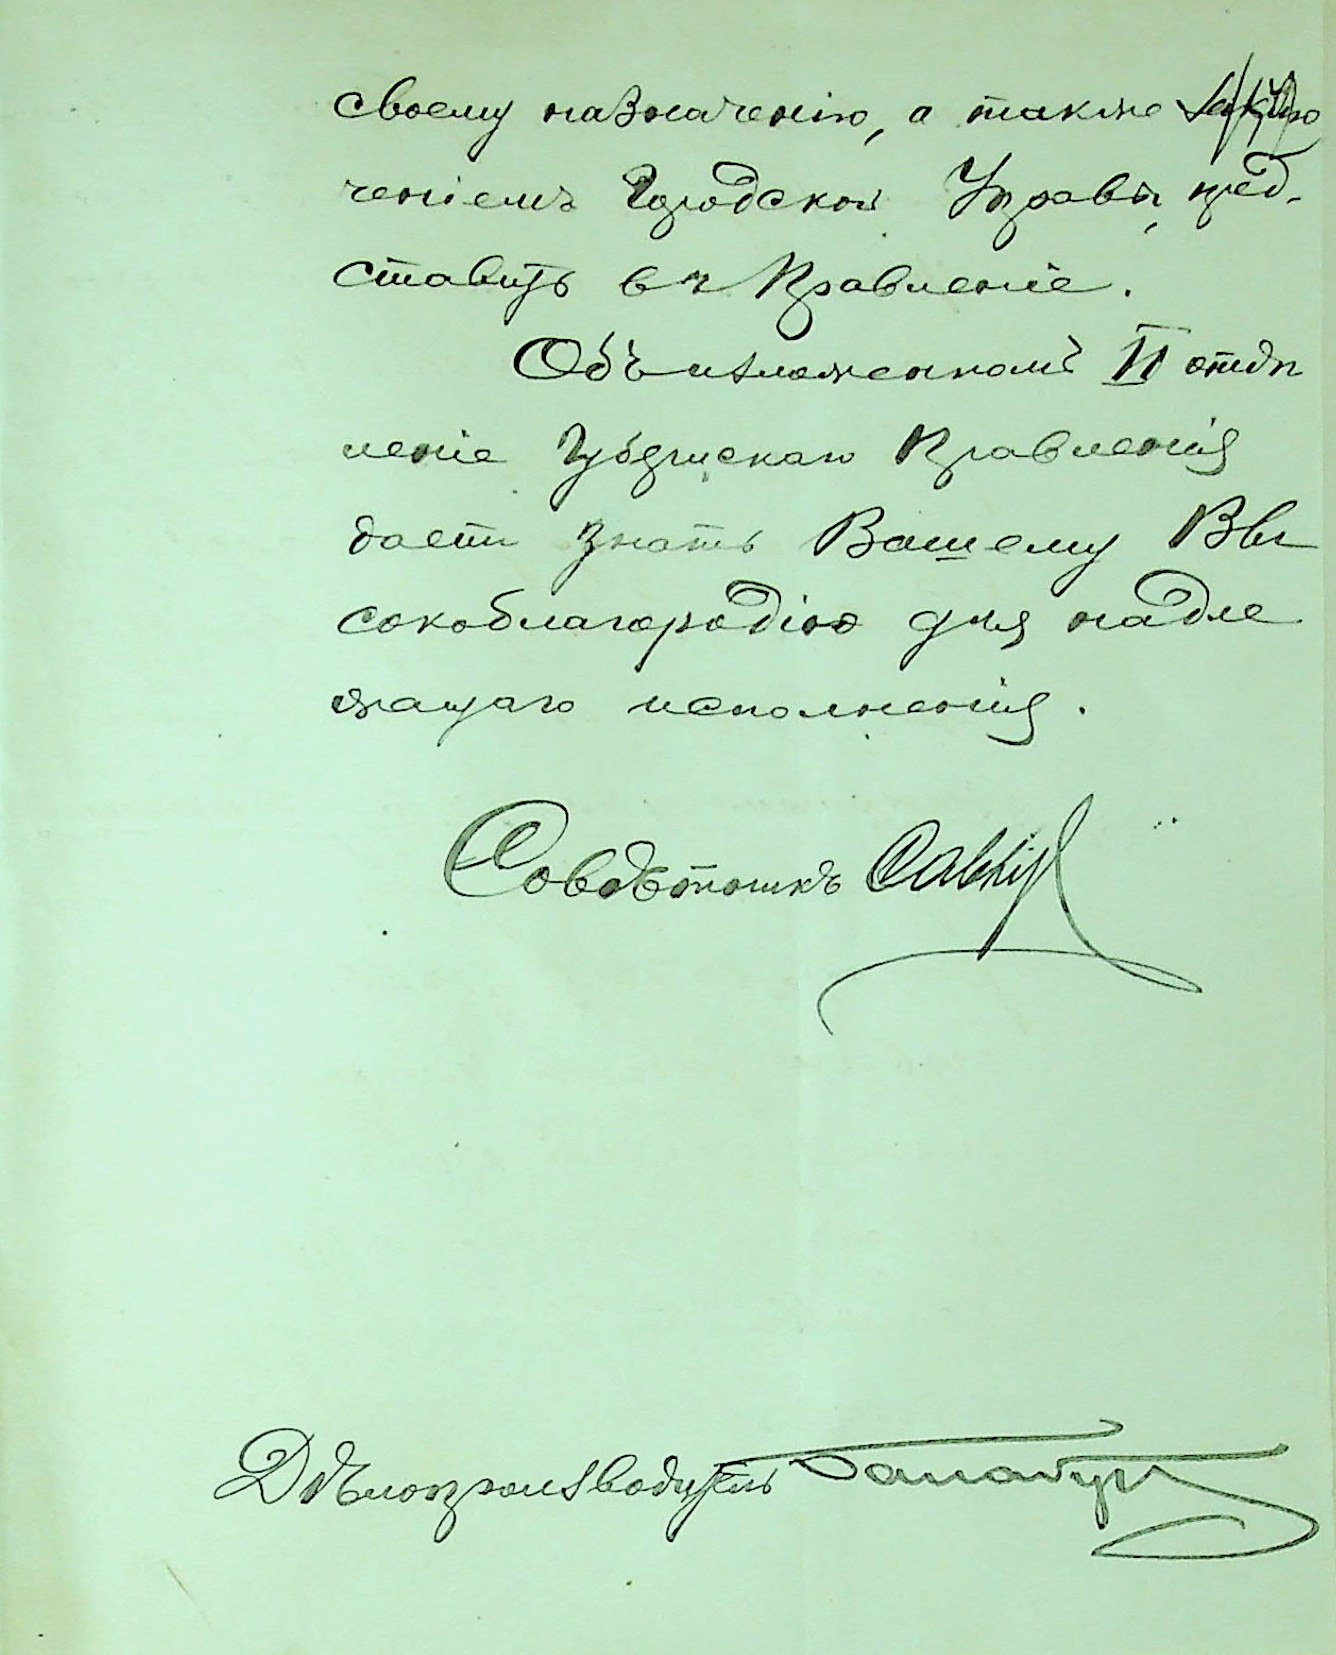 своему назначенію, а также Заклю
ченіемъ Городской Управы, пред-
ставить въ Правленіе.
Объ изложенномъ II отдѣ
леніе Губернскаго Правленія
даетъ знать Вашему Вы
сокоблагородію для надле
жащаго исполненія.
Совѣтникъ
Дѣлопроизводитель